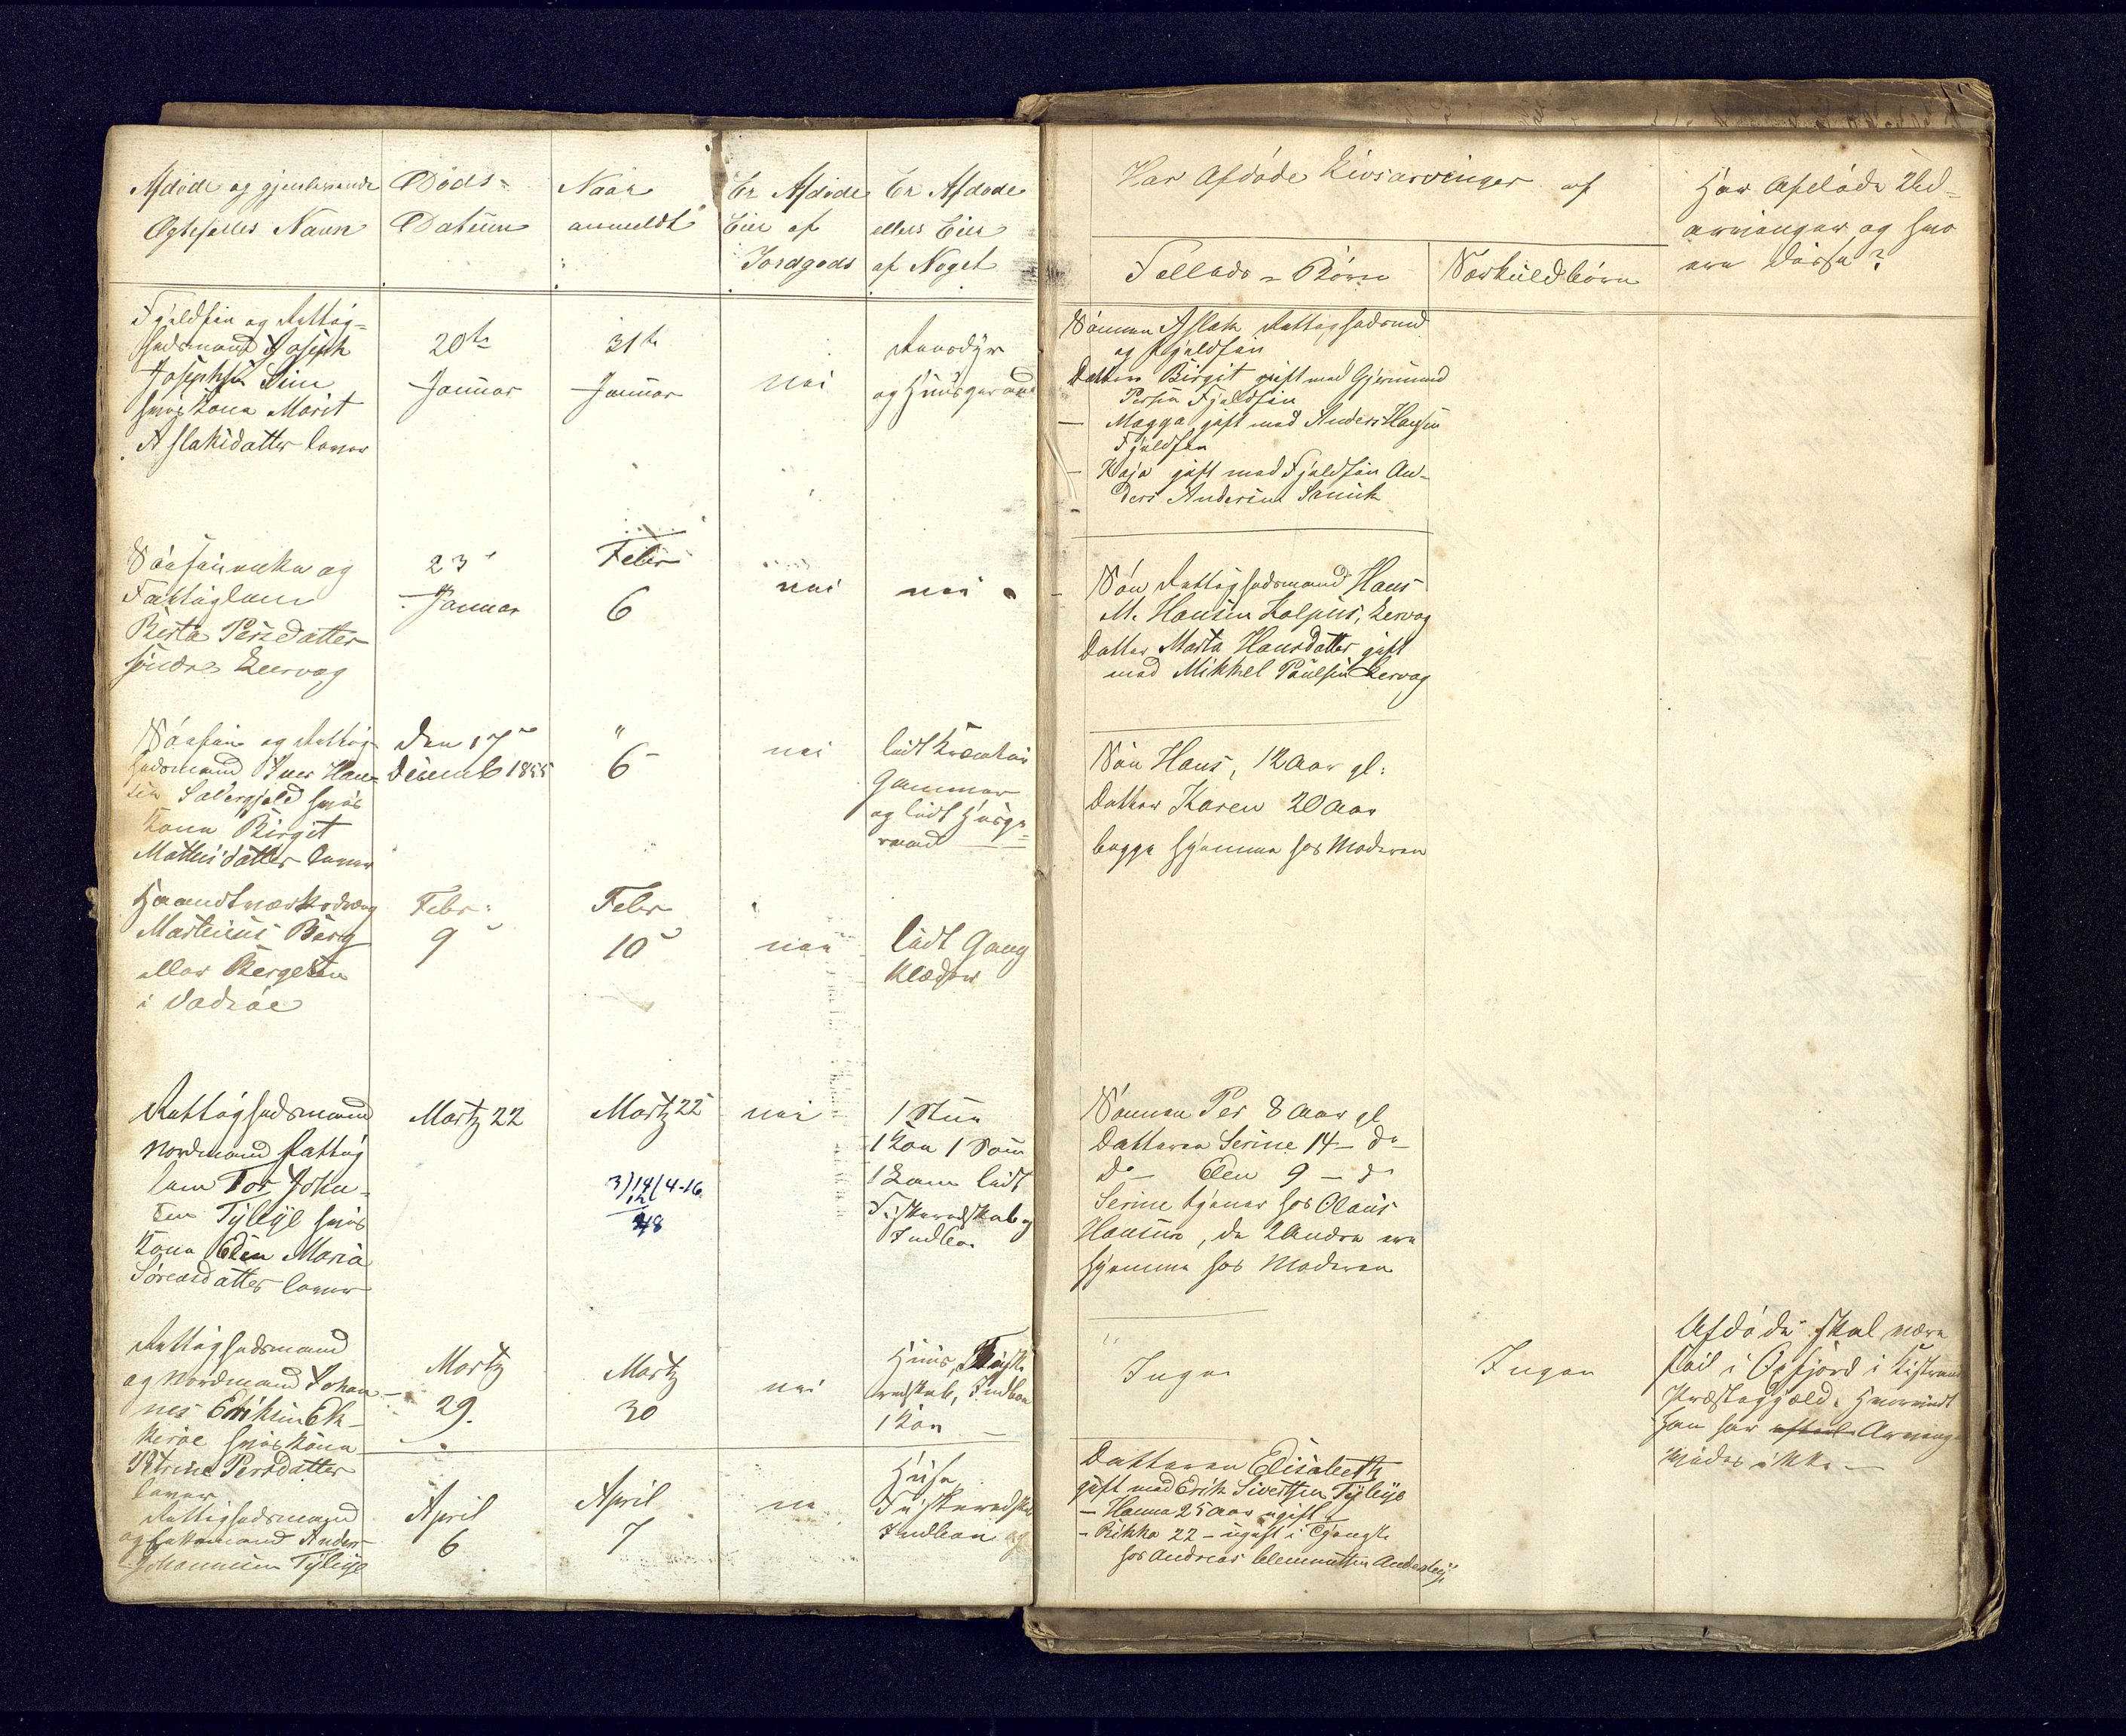 Afdøde og gjenlevende
Ægtefælles Navn
Døds-
Datum
Naar
anmeldt
Er Afdøde
Eier af
Jordgods
Er Afdøde
ellers Eier
af Noget
Har Afdøde Livsarvinger af
Fælleds-Børn
Særkuldbørn
Har Afdøde Ud-
arvinger og hvo
ere disse?
Fjeldfin og Fattig-
husmand Joseph
Josephsen
hvis Kone Marit
Aslaksdatter lever
20de
Januar
31te
Januar
nei
Reensdyr
og Huusgeraad
Sønnen Aslak Fattighusmd
og Fjeldfin
Datter Birgit gift med Gjermund
Persen Fjeldfin
— Magga gift med Anders Hansen
Fjeldfin
— Kaja gift med Fjeldfin An-
ders Andersen
Søefinnekone og
Fattiglem
Berta Persdatter
søndre Leervag
23
Januar
Febr
6
nei
nei
Søn Fattighusmand Hans
M. Hansen Kalpus, Lervag
Datter Marta Hansdatter gift
med Mikkel Paulsen Lervag
Søefin og Fattig-
husmand Iver Han-
sen hvis
Kone Birgit
Mathisdatter lever
Den 17de
Decemb 1855
"
6
nei
lidt Kreature
Gammer
og lidt Husge-
raad
Søn Hans, 12 Aar gl:
Datter Karen 20 Aar
begge hjemme hos Moderen
Haandtværksdreng
Martinus Berg
eller Bergesen
i Vadsøe
Febr:
9
Febr
10
nei
lidt Gang
Klæder
Fattighusmand
Nordmand Fattig
lem Tor John-
sen Tyleye hvis
Kone Elen Maria
Sørensdatter lever
Martz 22
Martz 22
3)14(4-16
12
48
nei
1 Stue
1 Koe 1 Søu
1 Lam lidt
Fiskeredskab og
Indboe
Sønnen Per 8 Aar gl
Datteren Serine 14 — do
do — Elen 9 — do
Serine tjener hos Olaus
Hansen, de 2 Andre ere
hjemme hos Moderen
Fattighusmand
og Nordmand Johan-
nes Eriksen Ek-
kerøe hvis Kone
Petrine Persdatter
lever
Martz
29.
Martz
30
nei
Huus, Fiske
redskab, Indboe
1 Koe
Ingen
Ingen
Afdøde skal være
fød i i Kistrand
Præstegjæld. Hvorvidt
han har Arvinge
vides ikke —
Fattighusmand
og Anders
Johannesen Tyleye
April
6
April
7
nei
Huse
Fiskeredskab
Indboe og
Datteren Elisabeth
gift med Erik Sivertsen Tyleye
— Hanna 25 Aar ugift
— Rikka 22 — ugift i Tjeneste
hos Andreas Clemmetsen Andersbye